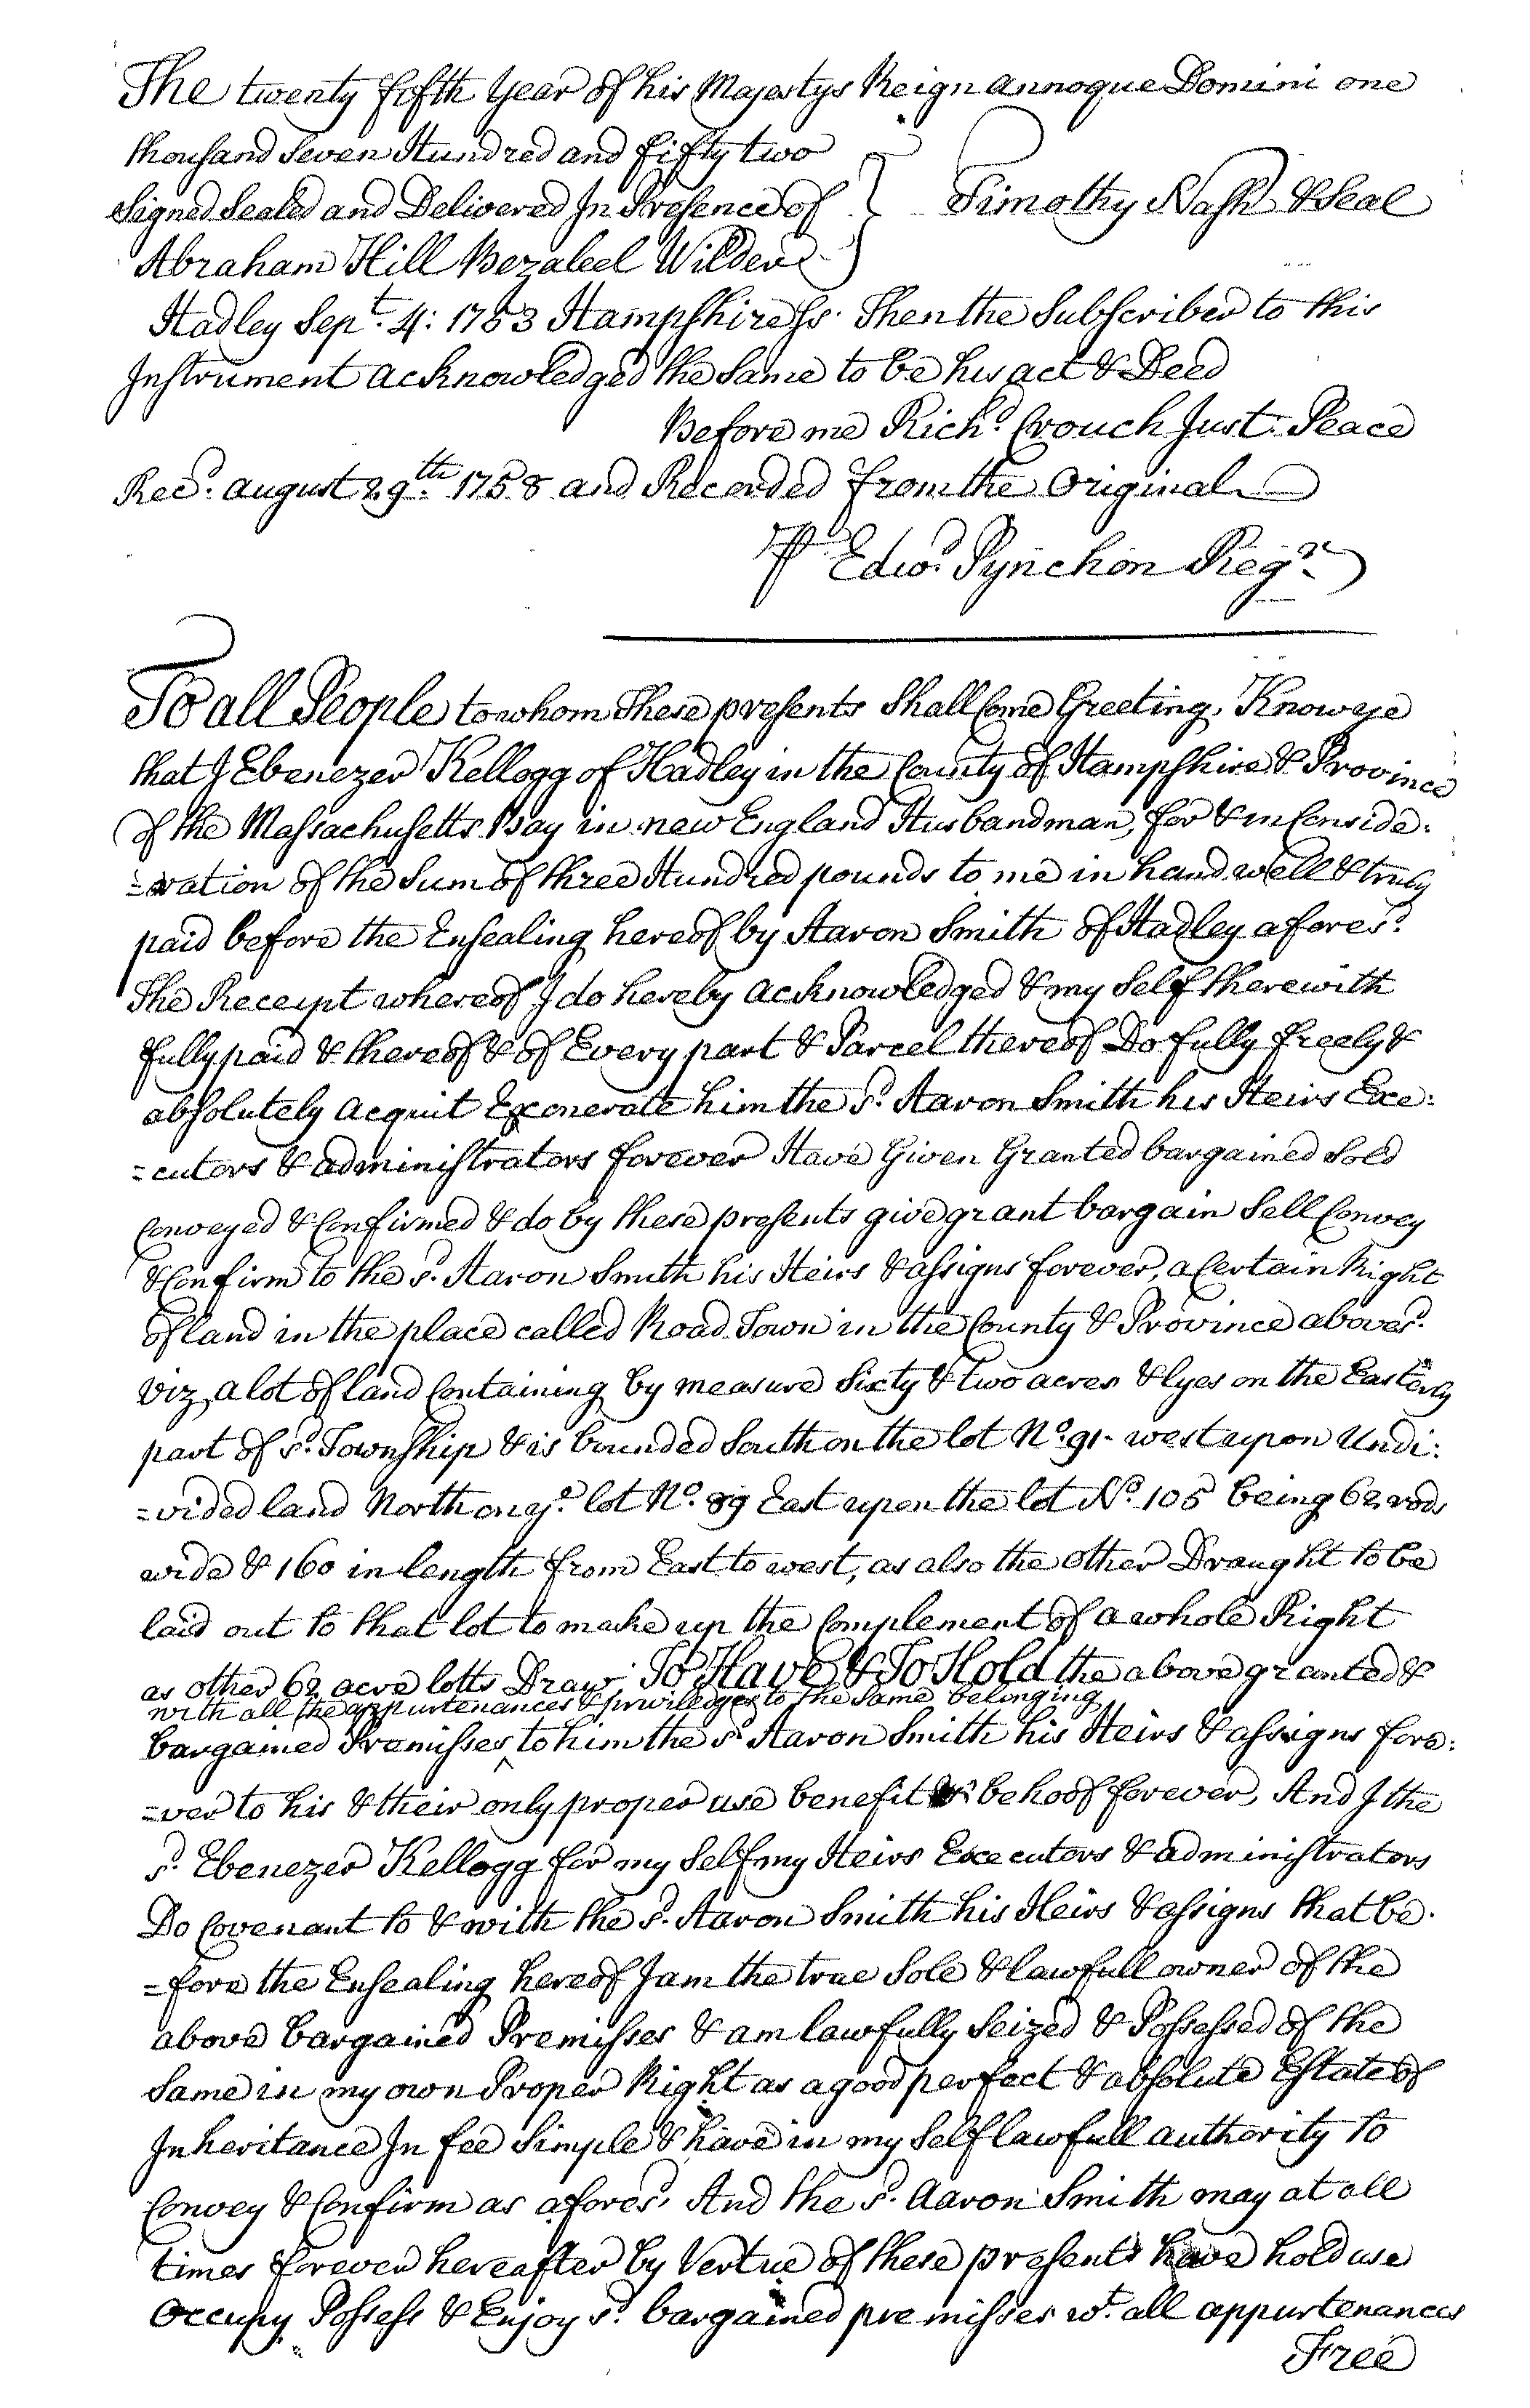 The twenty fifth Year of his Majestys Reign annoque Domini one
thousand Seven Hundred and fifty two
Signed Sealed and Delivered In Presence of } Timothy Nash & Seal
Abraham Hill Bezaleel Wilder
Hadley Sept. 4: 1753 Hampshire Ss. Then the Subscriber to this
Instrument acknowledged the Same to be his act & Deed
Before me Richd. Crouch Just. Peace
Recd. august 29th. 1758 and Recorded from the Original
P Edwd. Pynchon Regr.
To all People to whom These presents Shall Come Greeting, Know ye
that I Ebenezer Kellogg of Hadley in the County of Hampshire & Province
of the Massachusetts Bay in new England Husbandman, for & in Conside:
=ration of the Sum of three Hundred pounds to me in hand well & truly
paid before the Ensealing hereof by Aaron Smith of Hadley aforesd.
The Receipt whereof I do hereby acknowledged & my Self therewith
fully paid & thereof & of Every part & Parcel thereof Do fully freely &
absolutely acquit Exonerate him the sd. Aaron Smith his Heirs Exe:
=cutors & administrators forever Have Given Granted bargained Sold
Conveyed & Confirmed & do by these presents give grant bargain Sell Convey
& Confirm to the sd. Aaron Smith his Heirs & assigns forever, a Certain Right
of land in the place called Road Town in the County & Province abovesd.
viz, a lot of land Containing by measure Sixty & two acres & lyes on the Easterly
part of sd. Township & is bounded South on the lot No. 91- west upon Undi:
=vided land North on ye. lot No. 89 East upon the lot No. 105 being 62 rods
wide & 160 in length from East to west, as also the other Draught to be
laid out to that lot to make up the Complement of a whole Right
as other 62 acre lotts Draw. To Have & To Hold the above granted &
with all the appurtenances & priviledges to the Same belonging
bargained Premisses ^ to him the sd. Aaron Smith his Heirs & assigns fore:
=ver to his & their only proper use benefit & behoof forever, And I the
sd. Ebenezer Kellogg for my Self my Heirs Executors & administrators
Do Covenant to & with the sd. Aaron Smith his Heirs & assigns that be.
=fore the Ensealing hereof I am the true Sole & lawfull owner of the
above bargained Premisses & am lawfully Seized & Possessed of the
Same in my own Proper Right as a good perfect & absolute Estate of
Inheritance In fee Simple & have in my Self lawfull authority to
Convey & Confirm as aforesd, And the sd. Aaron Smith may at all
times forever hereafter by Vertue of these presents have hold use
Occupy Possess & Enjoy sd. bargained premisses wt. all appurtenances
Free